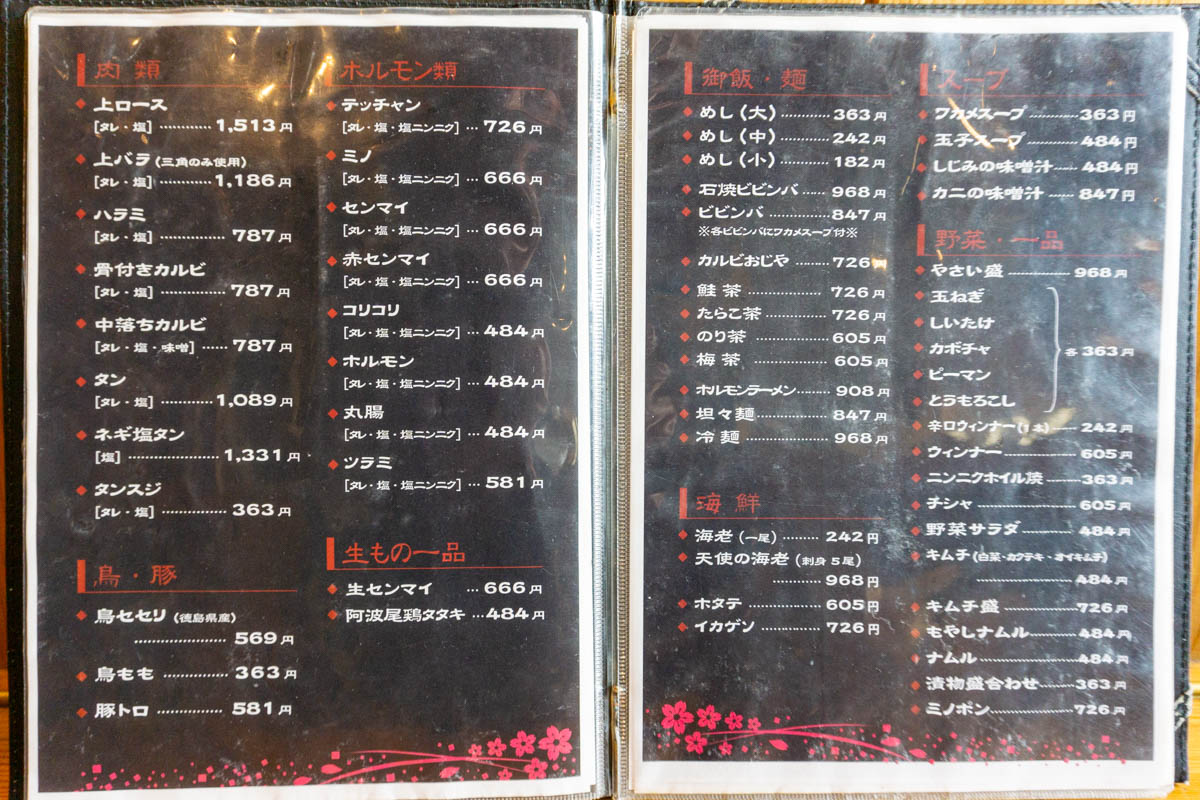 肉類
上ロース
[タレ・塩] ………… 1,513円
上バラ (三角のみ使用)
[タレ・塩] ………… 1,186円
ハラミ
[タレ・塩] ………… 787円
骨付きカルビ
[タレ・塩] ………… 787円
中落ちカルビ
[タレ・塩・味噌] …… 787円
タン
[タレ・塩] ………… 1,089円
ネギ塩タン
[塩] ………………… 1,331円
タンスジ
[タレ・塩] ………… 363円
鳥・豚
鳥セセリ (徳島県産)
………………… 569円
鳥もも ………… 363円
豚トロ ………… 581円
ホルモン類
テッチャン
[タレ・塩・塩ニンニク] … 726円
ミノ
[タレ・塩・塩ニンニク] … 666円
センマイ
[タレ・塩・塩ニンニク] … 666円
赤センマイ
[タレ・塩・塩ニンニク] … 666円
コリコリ
[タレ・塩・塩ニンニク] … 484円
ホルモン
[タレ・塩・塩ニンニク] … 484円
丸腸
[タレ・塩・塩ニンニク] … 484円
ツラミ
[タレ・塩・塩ニンニク] … 581円
生もの一品
生センマイ … 666円
阿波尾鶏タタキ … 484円
御飯・麺
めし(大) ………… 363円
めし(中) ………… 242円
めし(小) ………… 182円
石焼ビビンバ …… 968円
ビビンバ ………… 847円
※各ビビンバにワカメスープ付※
カルビおじや …… 726円
鮭茶 ………… 726円
たらこ茶 ………… 726円
のり茶 ………… 605円
梅茶 ………… 605円
ホルモンラーメン …… 908円
坦々麺 ………… 847円
冷麺 ………… 968円
海鮮
海老 (一尾) ……… 242円
天使の海老 (刺身5尾)
………… 968円
ホタテ ………… 605円
イカゲソ ………… 726円
スープ
ワカメスープ ………… 363円
玉子スープ ………… 484円
しじみの味噌汁 …… 484円
カニの味噌汁 …… 847円
野菜・一品
やさい盛 ………… 968円
玉ねぎ
しいたけ
カボチャ
各363円
ピーマン
とうもろこし
辛口ウィンナー(1本) …… 242円
ウィンナー ………… 605円
ニンニクホイル焼 …… 363円
チシャ ………… 605円
野菜サラダ ………… 484円
キムチ (白菜・カクテキ・オイキムチ)
………… 484円
キムチ盛 ………… 726円
もやしナムル ………… 484円
ナムル ………… 484円
漬物盛合わせ ……… 363円
ミノポン ………… 726円